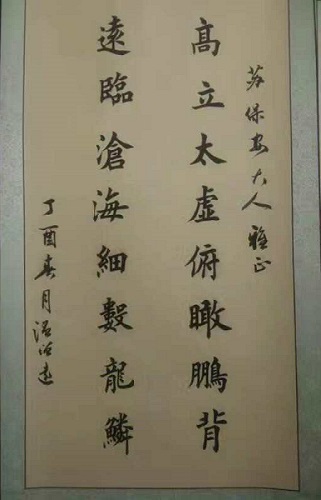 苏保安大人雅正
高立太虚俯瞰鹏背
遠臨滄海細數龍鱗
丁酉春月